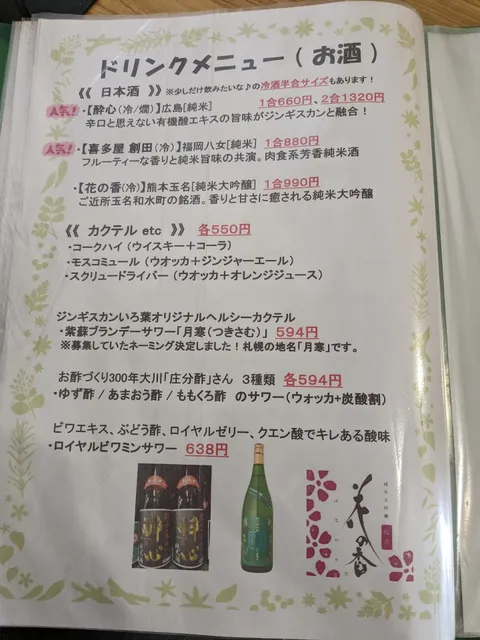 ドリンクメニュー( お酒 )
《《 日本酒 》》 ※少しだけ飲みたいな♪の冷酒半合サイズもあります!
人気! ・【酔心(冷/燗)】広島[純米] 1合660円、2合1320円
辛口と思えない有機酸エキスの旨味がジンギスカンと融合!
人気! ・【喜多屋 創田(冷)】福岡八女[純米] 1合880円
フルーティーな香りと純米旨味の共演。肉食系芳香純米酒
・【花の香(冷)】熊本玉名[純米大吟醸] 1合990円
ご近所玉名和水町の銘酒。香りと甘さに癒される純米大吟醸
《《 カクテル etc 》》 各550円
・コークハイ(ウイスキー+コーラ)
・モスコミュール(ウオッカ+ジンジャーエール)
・スクリュードライバー(ウオッカ+オレンジジュース)
ジンギスカンいろ葉オリジナルヘルシーカクテル
・紫蘇ブランデーサワー「月寒(つきさむ)」 594円
※募集していたネーミング決定しました!札幌の地名「月寒」です。
お酢づくり300年大川「庄分酢」さん 3種類 各594円
・ゆず酢 / あまおう酢 / ももくろ酢 のサワー(ウォッカ+炭酸割)
ビワエキス、ぶどう酢、ロイヤルゼリー、クエン酸でキレある酸味
・ロイヤルビワミンサワー 638円
花の香